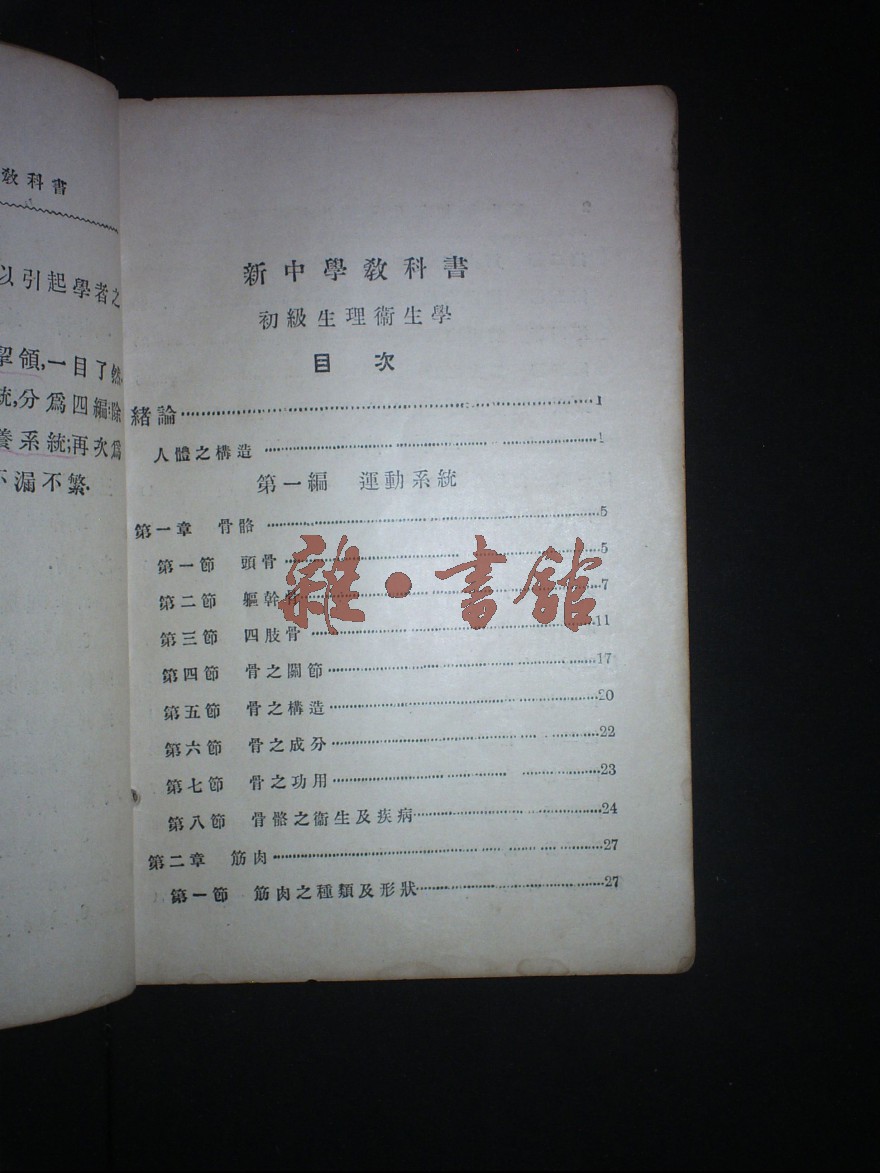 教科書
以引起學者之
挈領,一目了然.
統,分爲四編:除
養系統;再次爲
不漏不繁.
新中學教科書
初級生理衞生學
目 次
緒論 1
人體之構造 1
第一編 運動系統
第一章 骨骼 5
第一節 頭骨 5
第二節 軀幹骨 7
第三節 四肢骨 11
第四節 骨之關節 17
第五節 骨之構造 20
第六節 骨之成分 22
第七節 骨之功用 23
第八節 骨骼之衞生及疾病 24
第二章 筋肉 27
第一節 筋肉之種類及形狀 27
雜·書館